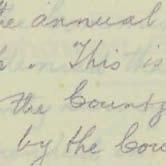 the annual
. This is
the County
by the Cou